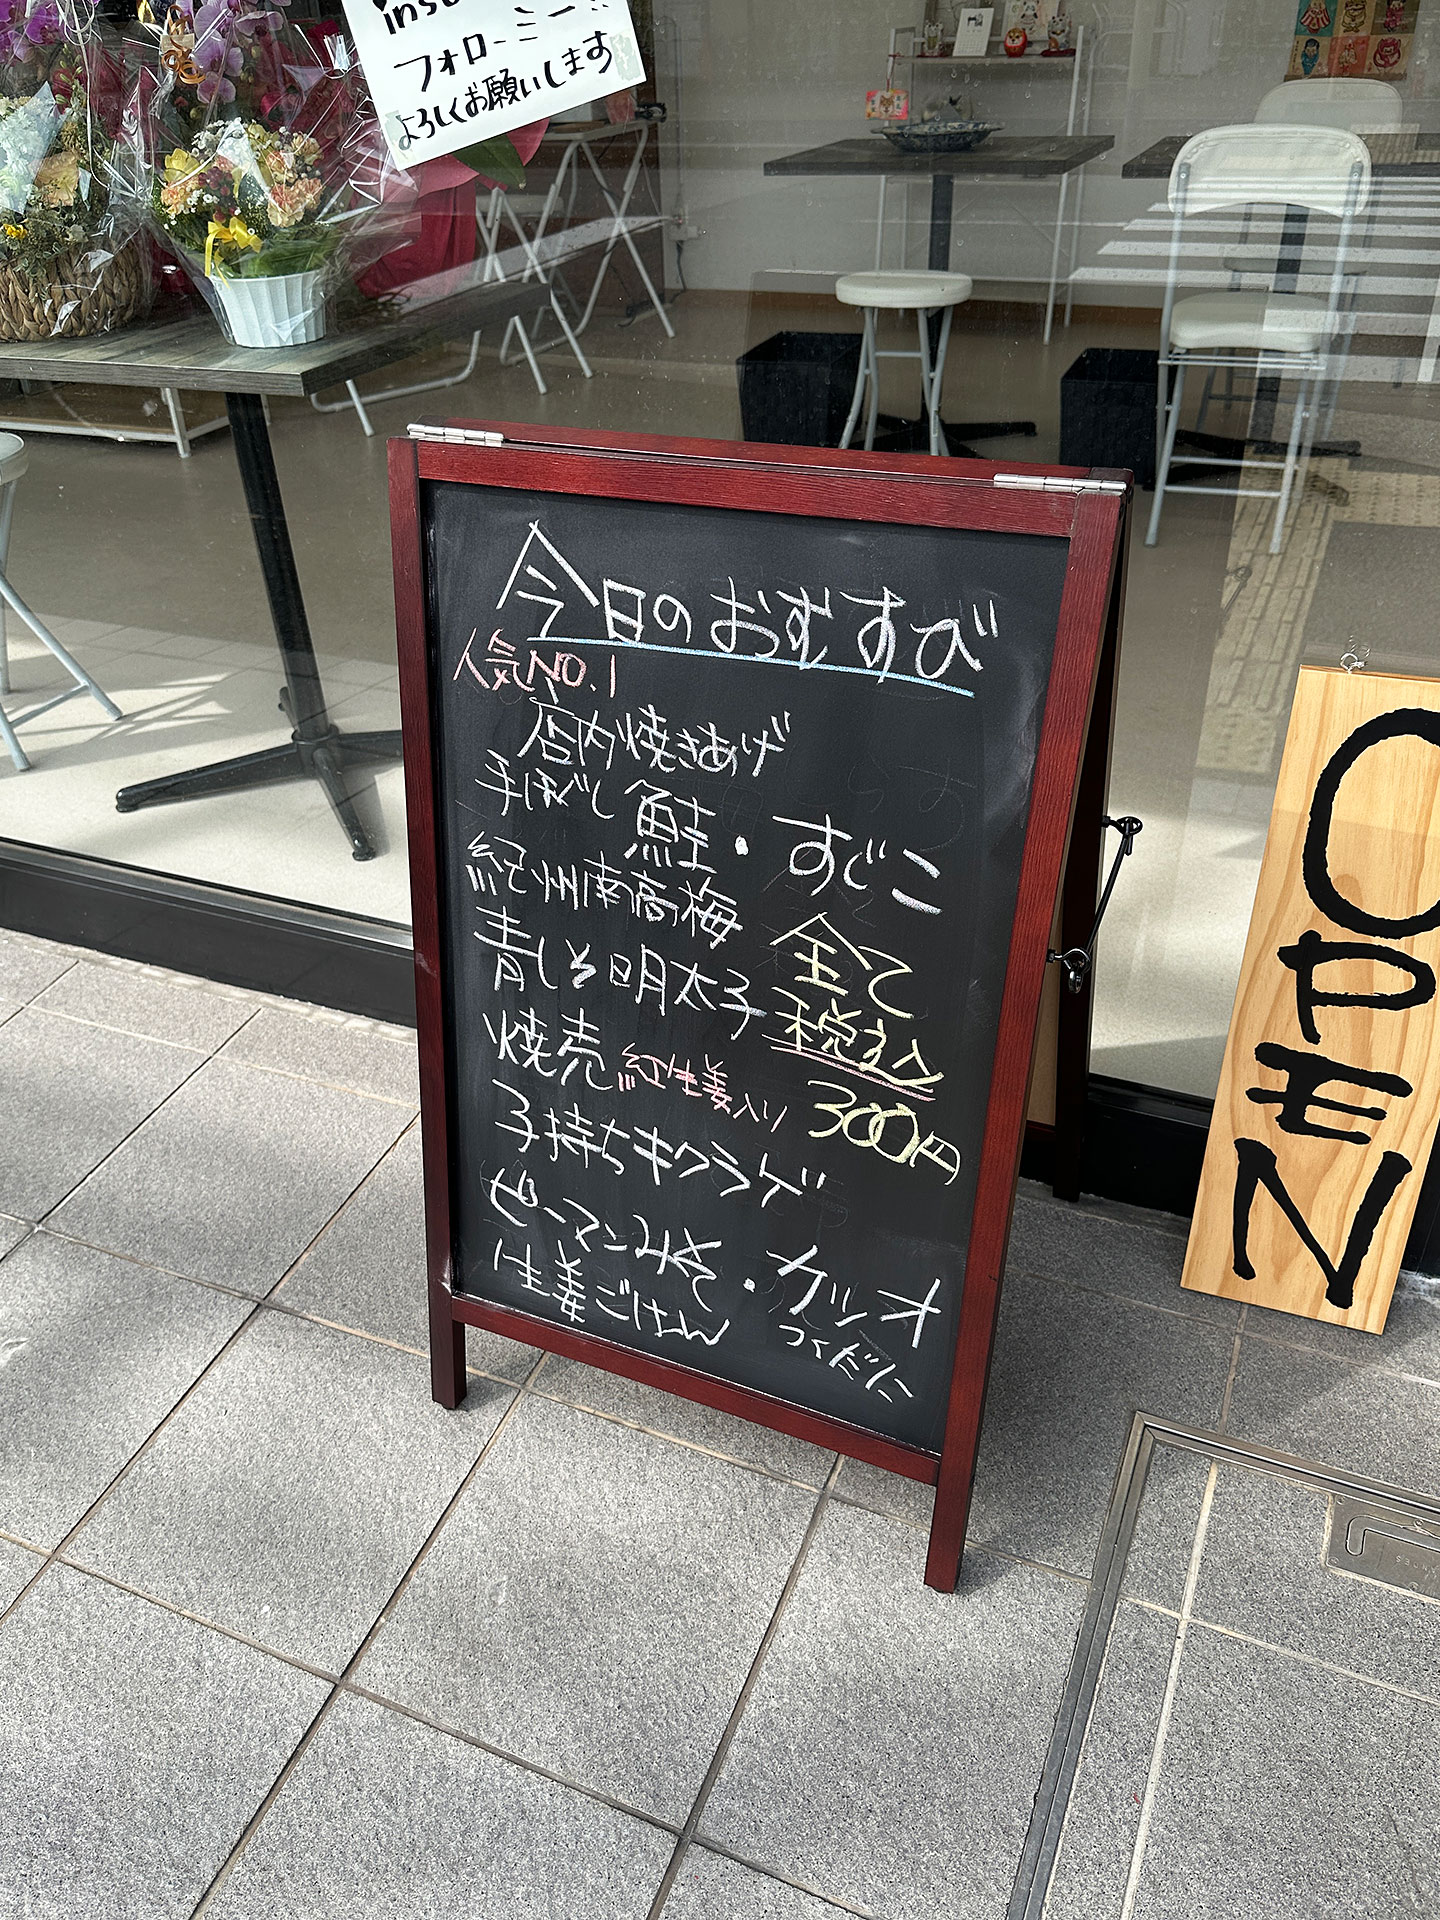 フォローミー!!
よろしくお願いします
今日のおむすび
人気NO.1
店内焼きあげ
手ほぐし 鮭・すじこ
紀州南高梅
青しそ明太子
全て
税込
300円
焼売 紅生姜入り
子持ちキクラゲ
ピーマンみそ・カツオ
つくだに
生姜ごはん
OPEN